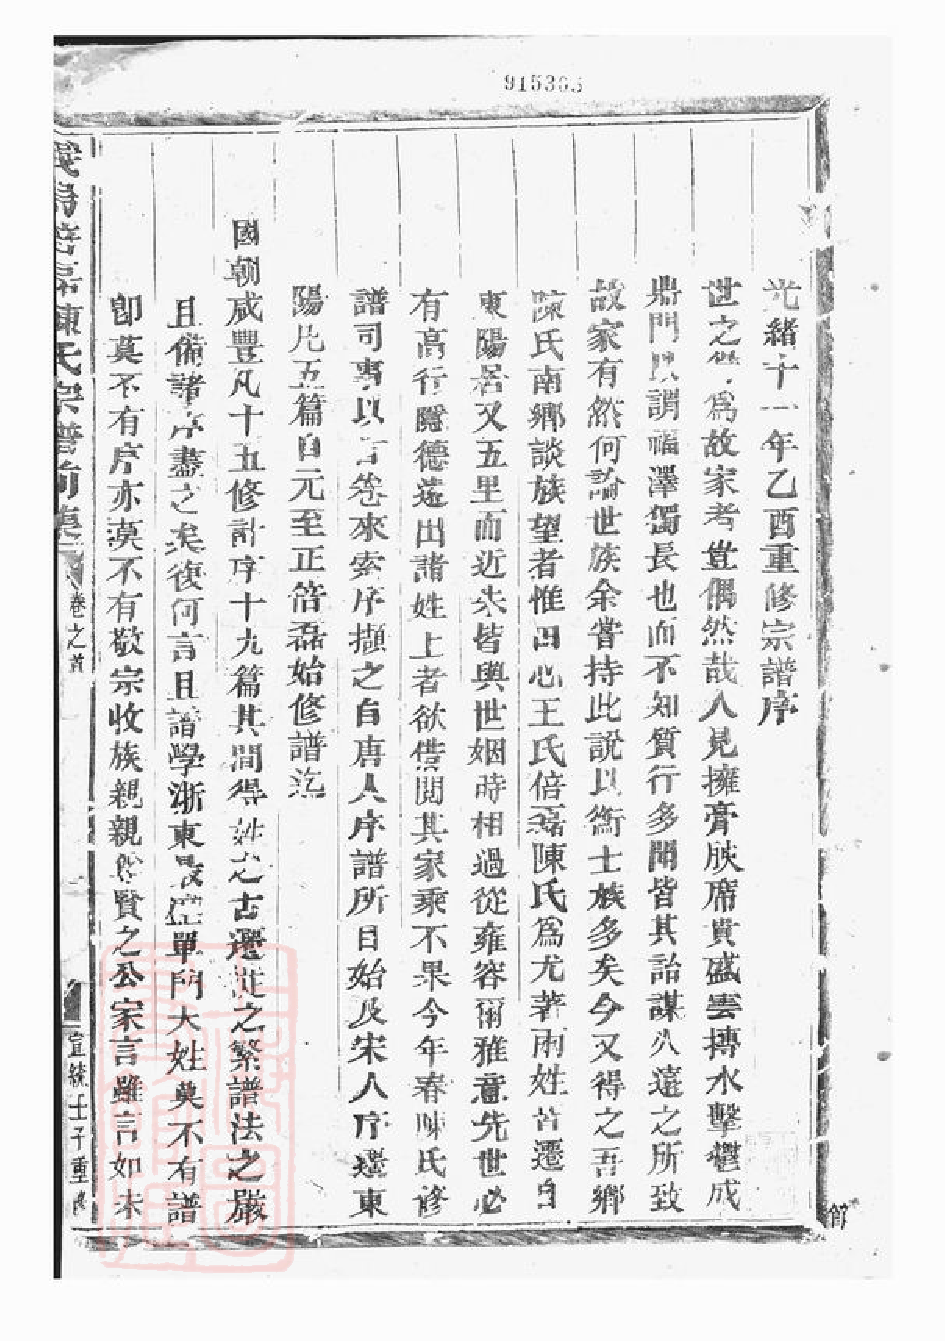 915363
光緒十一年乙酉重修宗譜序
世之 為故家者豈偶然哉人見擁膏腴席貴盛雲摶水擊歷成
鼎門以謂福澤獨長也而不知質行多聞皆其詒謀久遠之所致
故家有然何論世族余嘗持此說以衡士族多矣今又得之吾鄉
陳氏南鄉談族望者惟田心王氏倍磊陳氏為尤著兩姓皆遷自
東陽居又五里而近朱皆與世姻時相過從雍容爾雅意先世必
有高行隱德遠出諸姓上者欲借閱其家乘不果今年春陳氏修
譜司事以 卷來索序擷之自唐人序譜所日始及宋人序遷東
陽凡五篇自元至正倍磊始修譜迄
國朝咸豐凡十五修計序十九篇其間得姓之古遷徙之繁譜法之嚴
且備諸序盡之矣復何言且譜學浙東最盛單門大姓莫不有譜
卽莫不有序亦莫不有敬宗收族親親 賢之公家言雖言如未
義烏倍磊陳氏宗譜前集
卷之首
宣統壬子重修